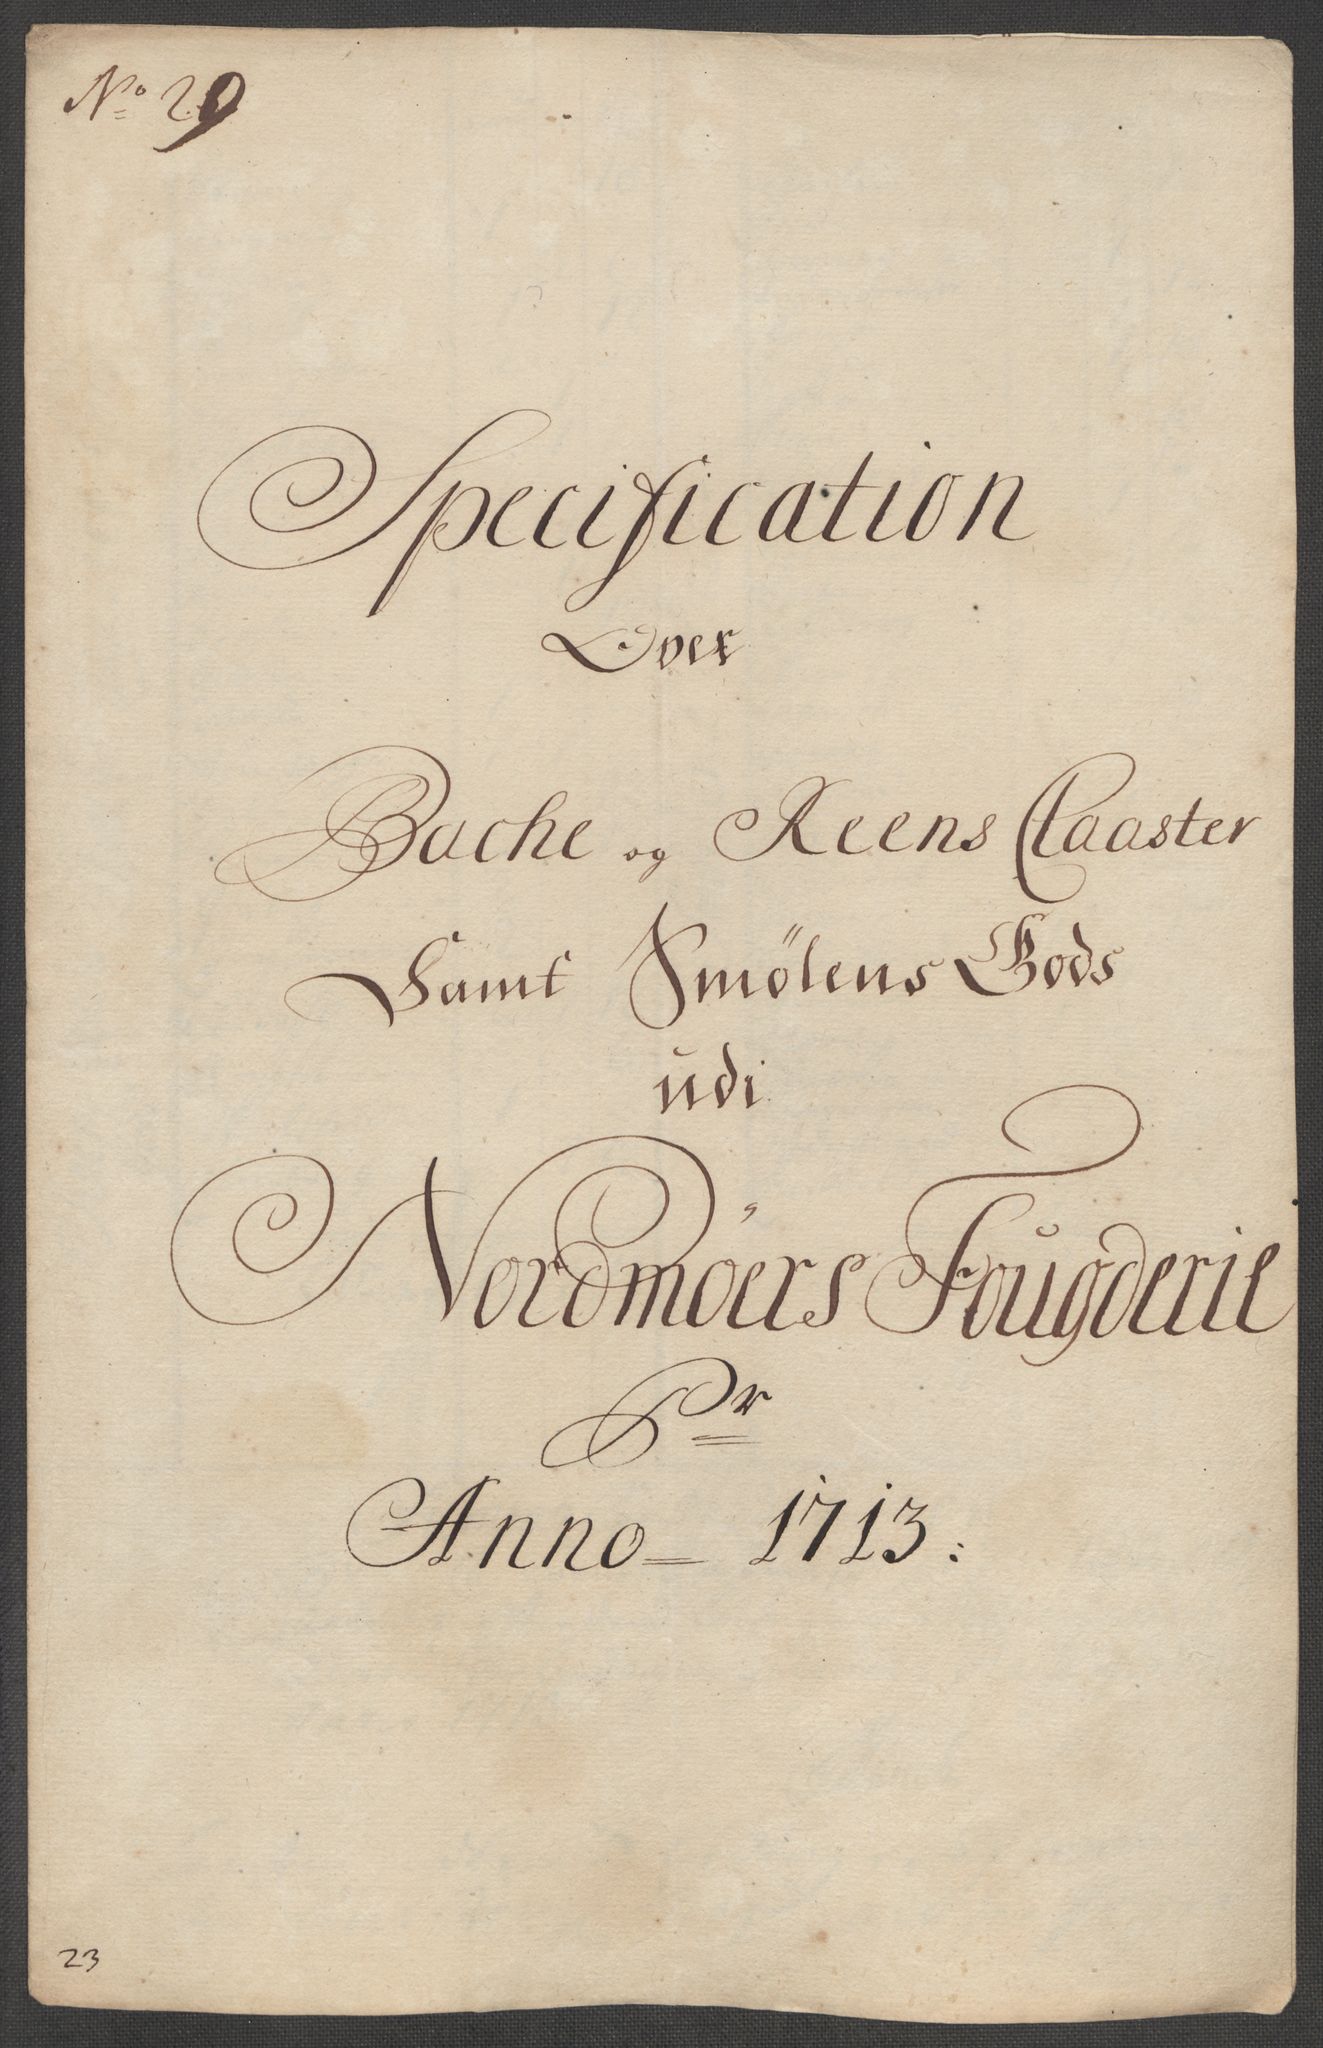 No 29
Specification
Over
Bache og Reens Claaster
Samt Smölens Gods
udi
Nordmöers Fougderie
Pr
Anno 1713.
23